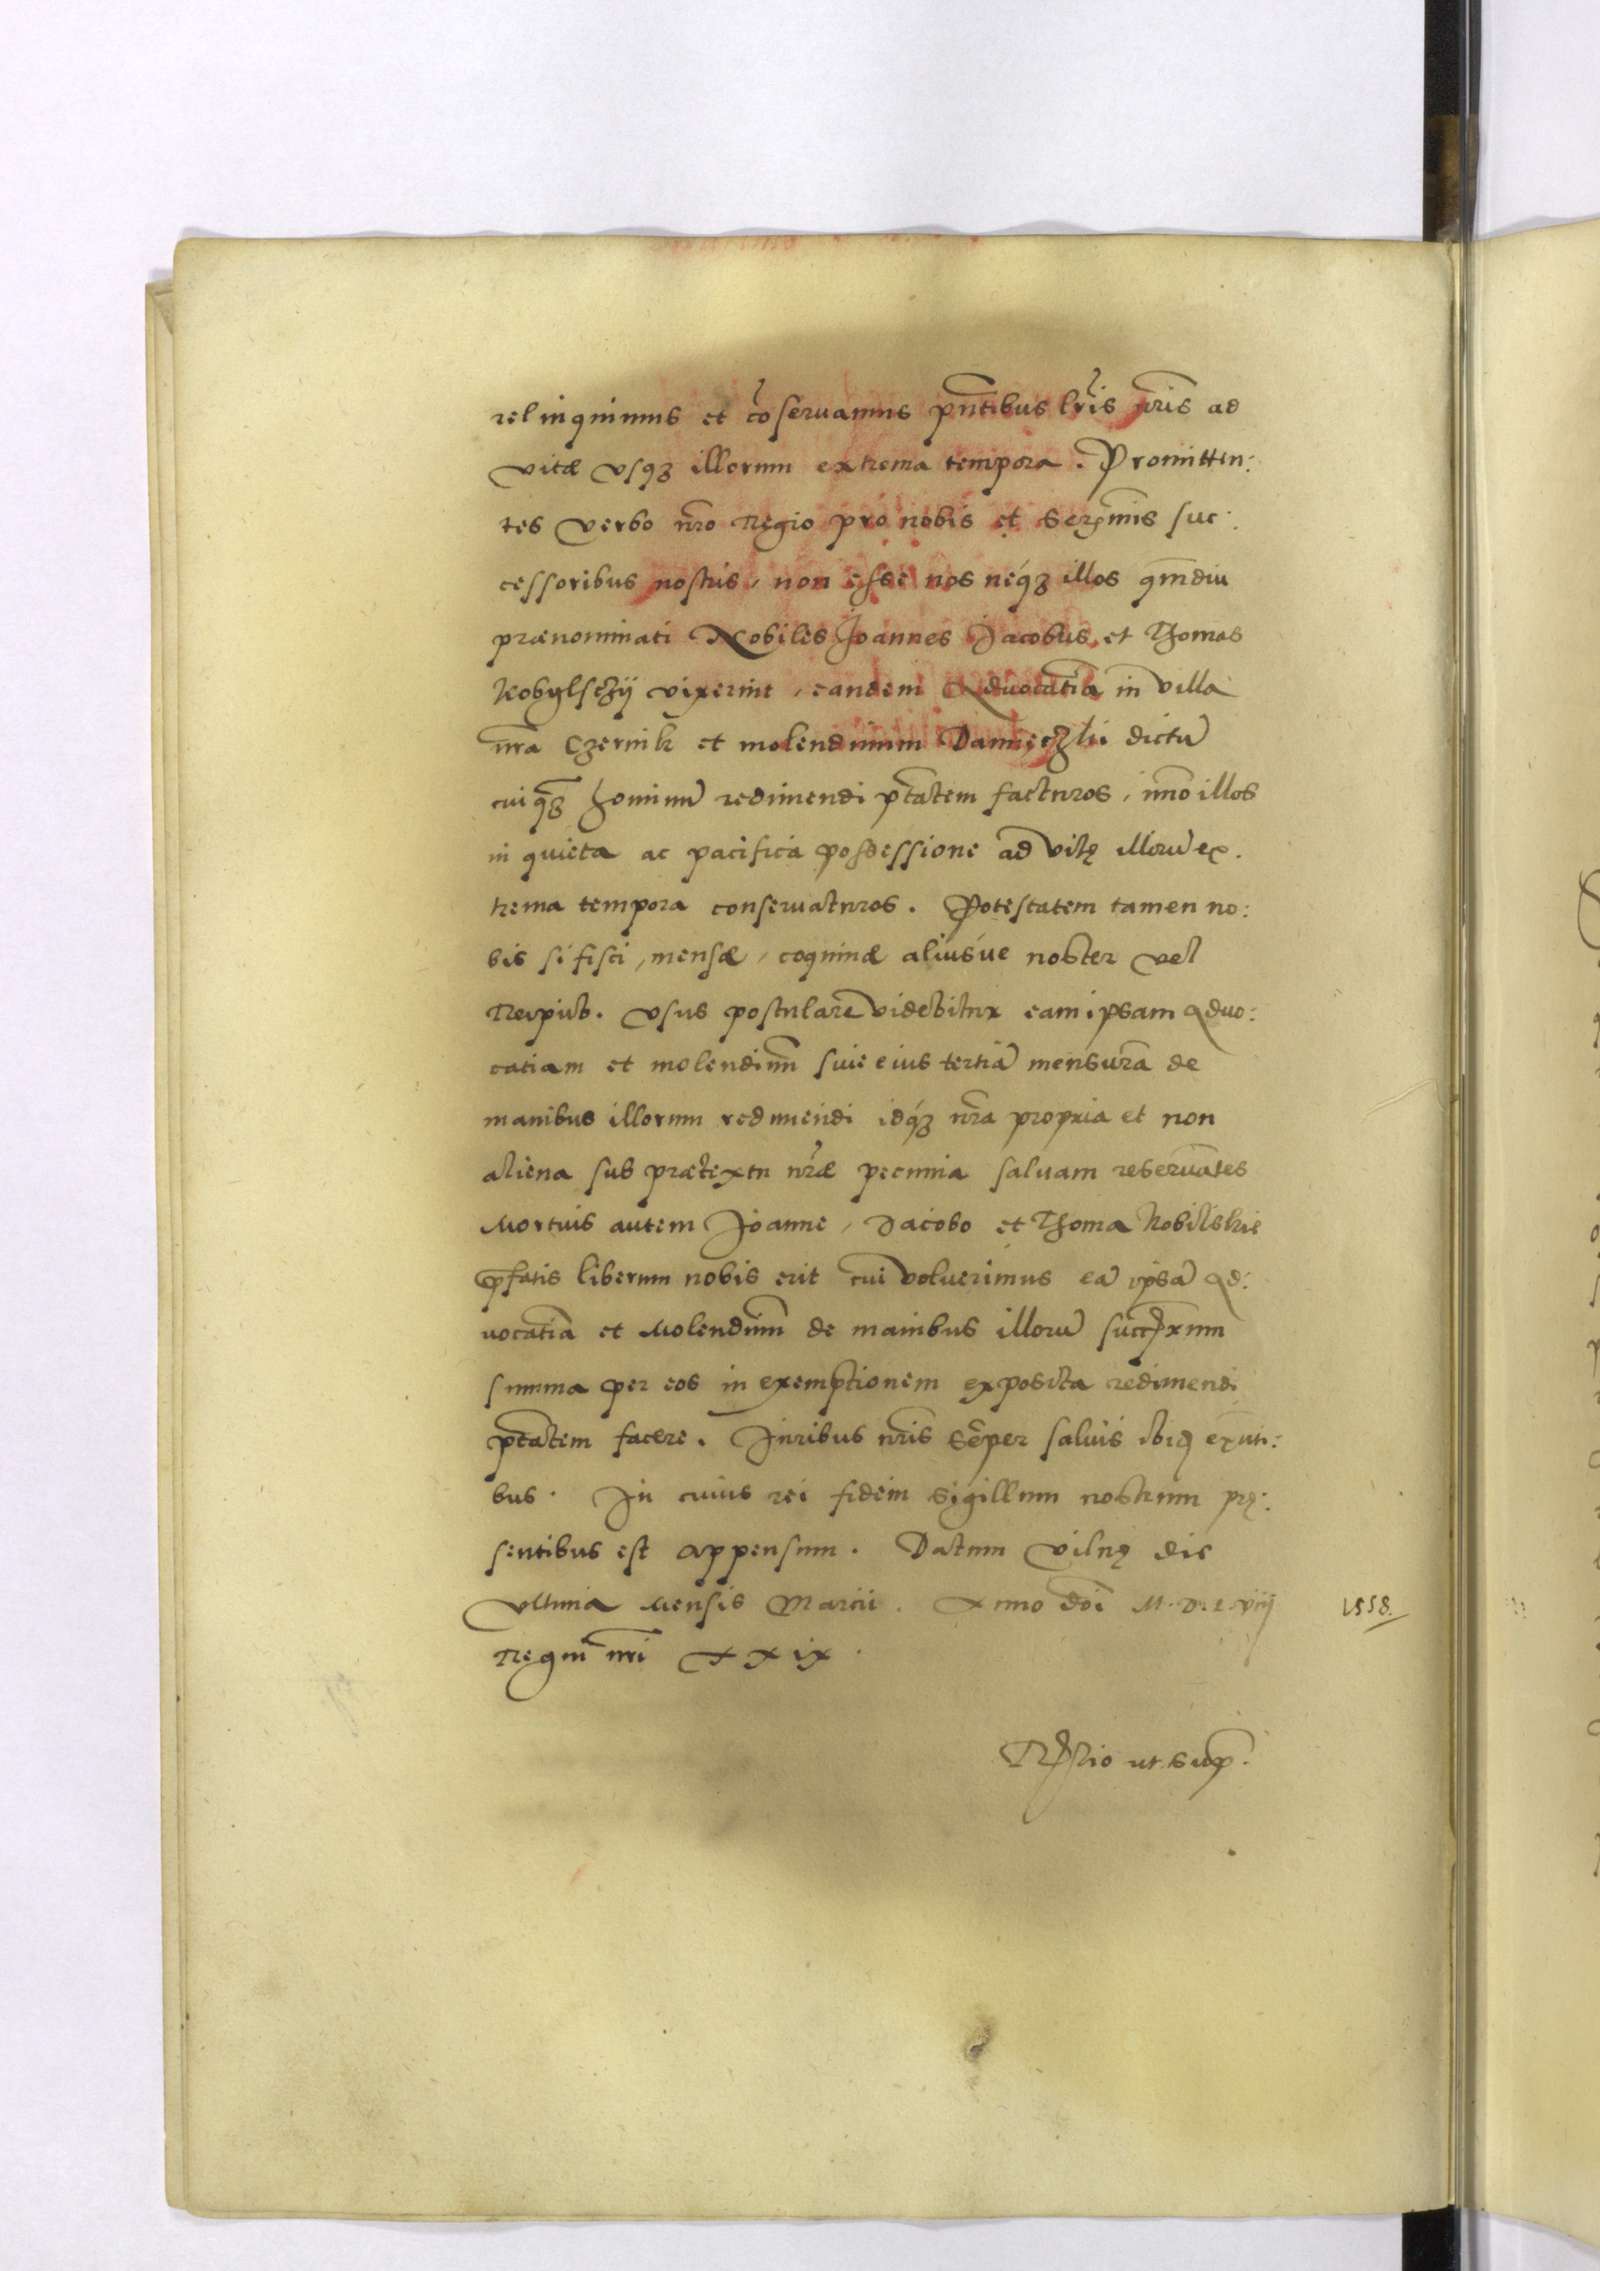 relinquimus et cõservamus pñtibus lr̃is nr̃is ad
vitæ vsqȝ illorum extrema tempora. Promitten:
tes verbo nr̃o Regio pro nobis et serẽmis suc:
cessoribus nostris, non esse nos neqȝ illos qm̃diu
prænominati Nobiles Joannes Jacobus et Thomas
Kobylsczij vixerint, eandem Advocatiã in villa
nr̃a Czernik et molendinum dictũ
cuiqȝ hominũ redimendi ptãtem facturos, im̃o illos
in quieta ac pacifica possessione ad vitę illorũ ex.
trema tempora conservaturos. Potestatem tamen no:
bis si fisci, mensæ, coquinæ aliusue noster vel
Reipub. vsus postulare videbitur eam ipsam Advo:
catiam et molendinũ siue eius tertiã mensurã de
manibus illorum redimendi idqȝ nr̃a propria et non
aliena sub prætextu nr̃æ pecunia salvam reservãtes
Mortuis autem Joanne, Jacobo et Thoma Kobilskie
p̃fatis liberum nobis erit cui voluerimus eã ipsã Ad:
vocatiã et Molendinũ de manibus illorũ succẽxum
summa per eos in exemptionem exposita redimendi
ptãtem facere. Juribus nr̃is sẽper salvis ibiqȝ exñti:
bus. In cuius rei fidem sigillum nostrum prę:
sentibus est appensum. Datum Vilnę die
vltima Mensis Marcii. Anno dõi M.D.L.viij
Regni nr̃i XXix.
1558.
R̃latio ut sup̃.